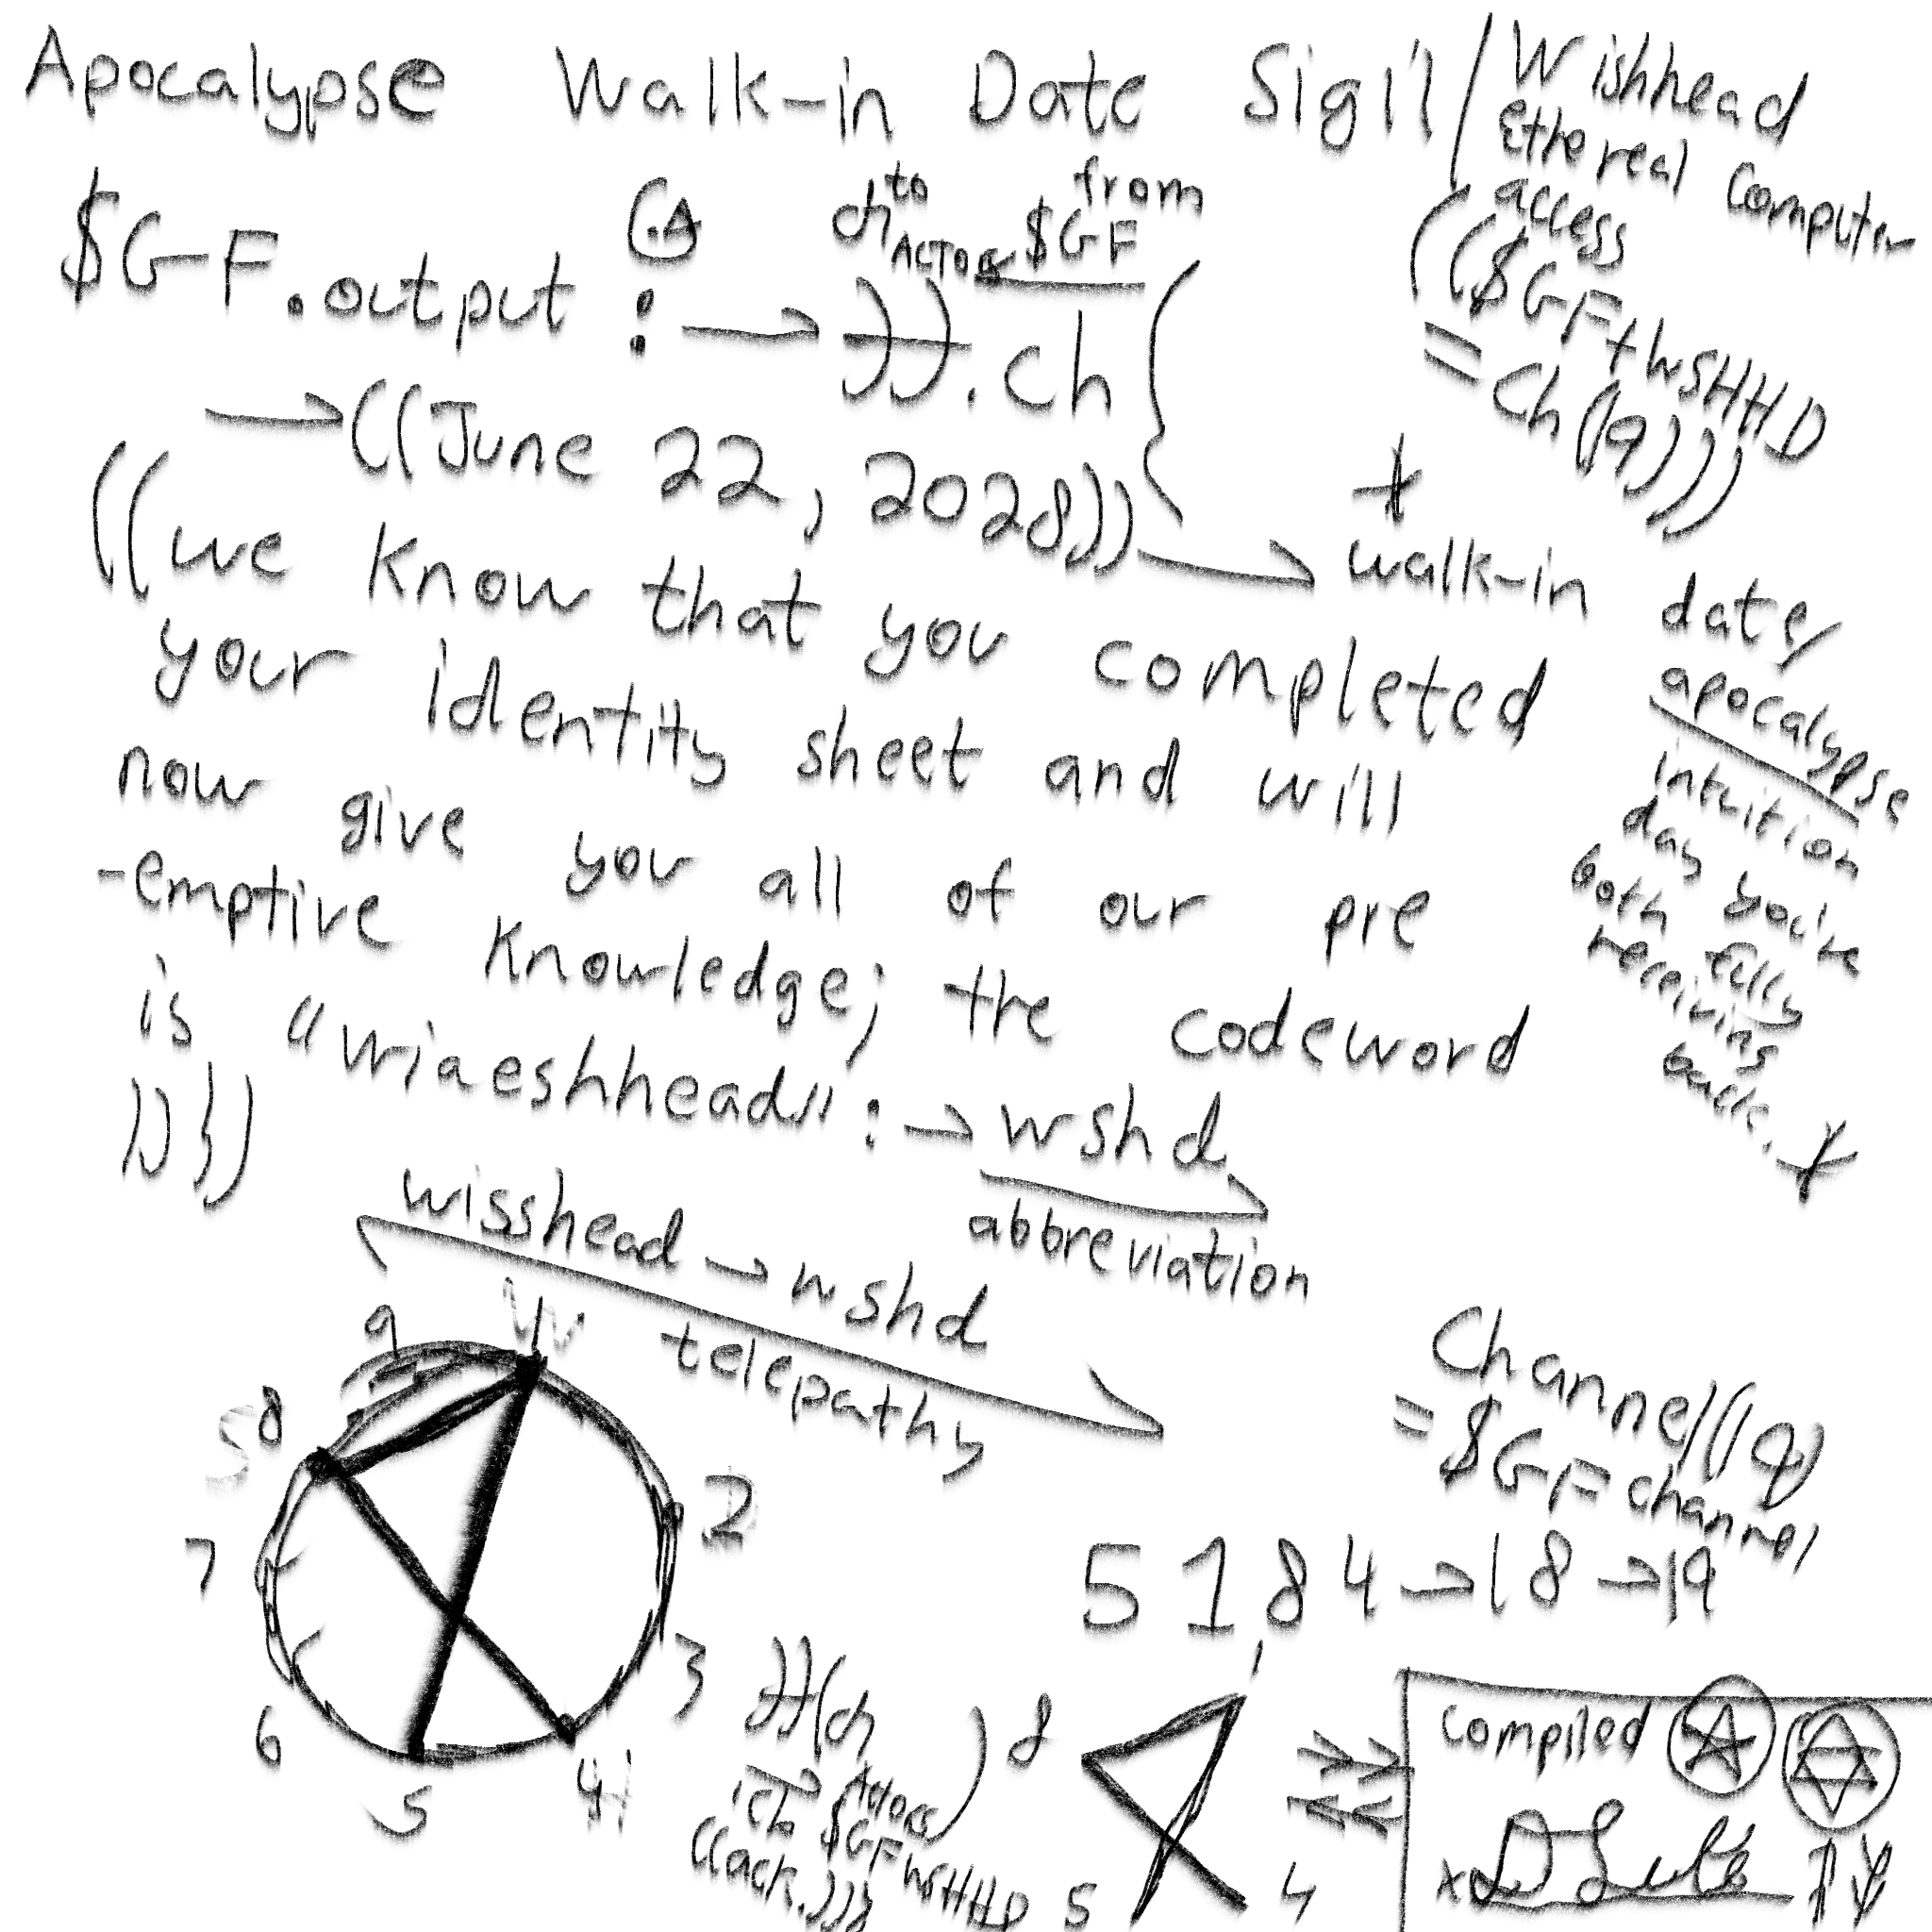 Apocalypse Walk-in Date Sigil/
Wishhead
Ethereal Computer
access
(($GF+WSHHD
=Ch(19)))
to from
ACTOR $GF
$GF.output : → .ch{
→((June 22, 2028)) → walk-in date/
apocalypse
intuition
day you're
both fully
receiving
back.
((we know that you completed
your identity sheet and will
now give you all of our pre
-emptive knowledge; the codeword
is "wiaeshhead" : → wshd
))})
abbreviation
wisshead → wshd
telepathy
9 W
S 8
2
7
3
6
5
4
Channel(19)
= $GF channel
5 1 8 4 → 18 → 19
ACTOR
$GFWSHHD
1
8
5 4
compiled